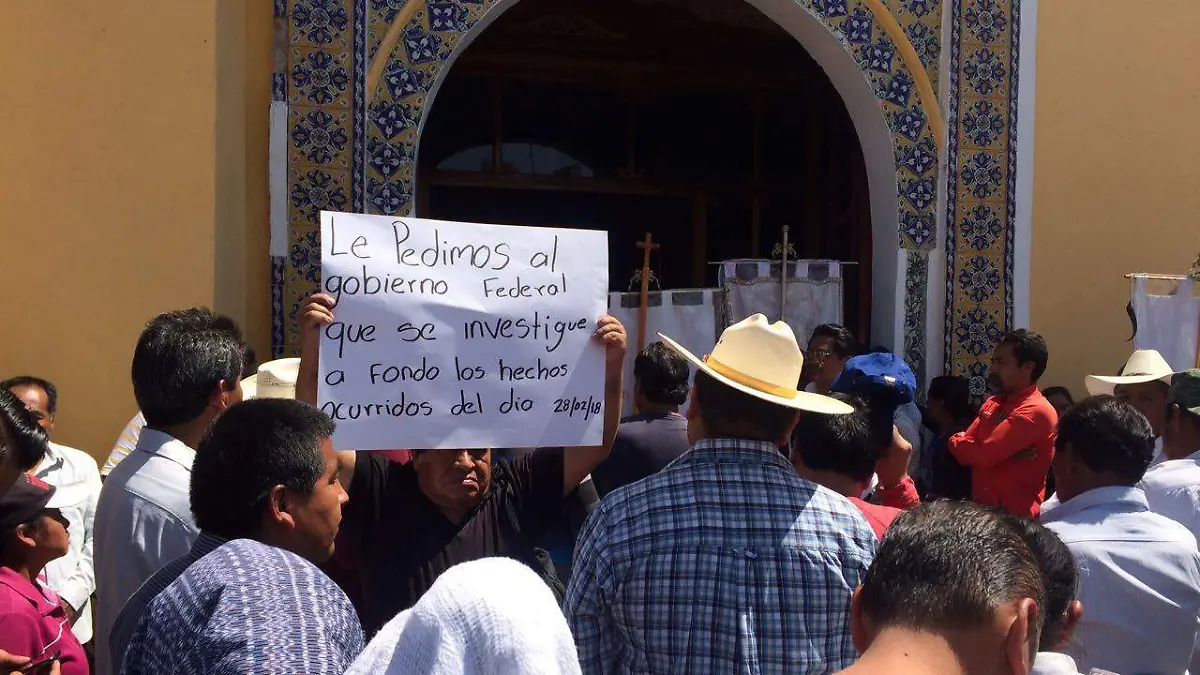 Le Pedimos al
gobierno Federal
que se investigue
a Fondo los hechos
ocurridos del dia 28/02/18